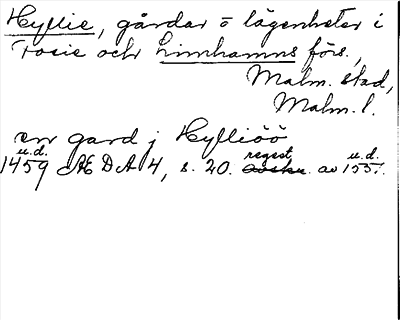 Hyllie, gårdar o lägenheter i
Fosie och Limhamns förs.,
Malm. stad,
Malm. l.
en gard j Hylliöö
u.d. regest u.d.
1459 ÆDA 4, s. 20. avskr. av 1551.